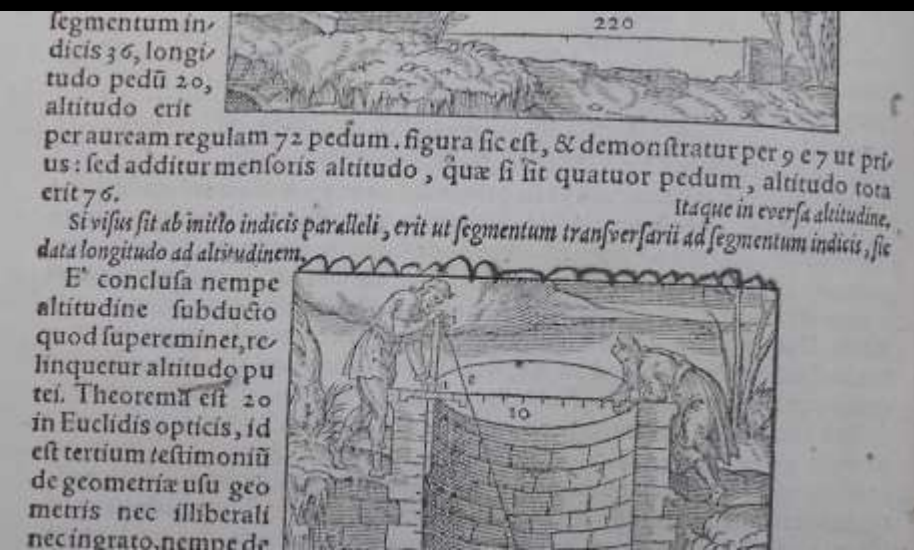 segmentum in-
dicis 36, longi-
tudo pedū 20,
altitudo erit
220
per auream regulam 72 pedum. figura sic est, & demonstratur per 9 e 7 ut pri-
us: sed additur mensoris altitudo, q̃uæ si sit quatuor pedum, altitudo tota
erit 76.
Itaque in eversa altitudine,
Si visus sit ab initio indicis paralleli, erit ut segmentum transversarii ad segmentum indicis, sic
data longitudo ad altitudinem.
E' conclusa nempe
altitudine subducto
quod supereminet, re-
linquetur altitudo pu
tei. Theorema est 20
in Euclidis opticis, id
est tertium testimoniū
de geometriæ usu geo
metris nec illiberali
nec ingrato, nempe de
10